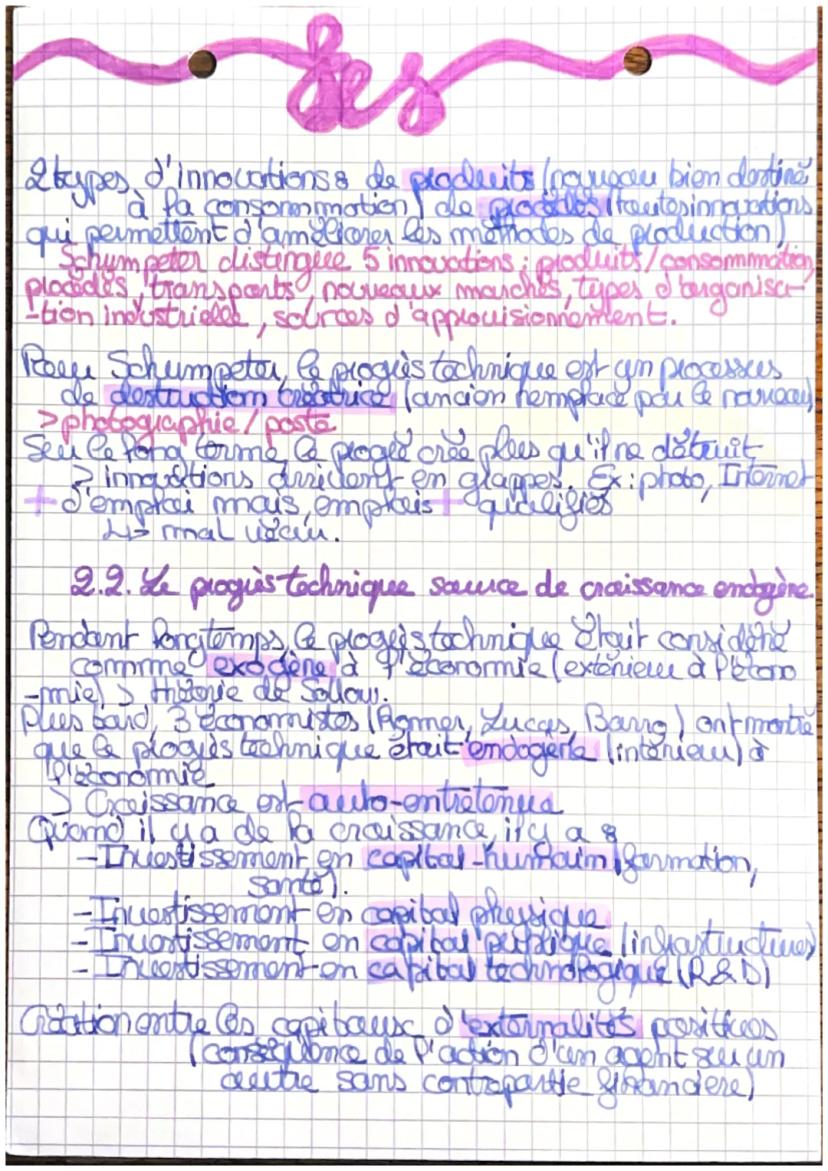 Ses
2 types d'innovations : de produits (nouveau bien destiné
à la consommation) de procédés (toutes innovations
qui permettent d'améliorer les méthodes de production)
Schumpeter distingue 5 innovations : produits/consommation,
procédés, transports, nouveaux marchés, types d'organisa-
-tion industrielle, sources d'approvisionnement.
Pour Schumpeter, le progrès technique est un processus
de destruction créatrice (ancien remplacé par le nouveau)
> photographie / poste
Sur le long terme le progrès crée plus qu'il ne détruit
> innovations arrivent en grappes. Ex : photo, Internet
+ d'emploi mais, emplois + qualifiés
↳> mal vécu.
2.2. Le progrès technique source de croissance endogène.
Pendant longtemps, le progrès technique était considéré
comme exogène à l'économie (extérieur à l'écono
-mie) > théorie de Sollow.
Plus tard, 3 économistes (Romer, Lucas, Barro) ont montré
que le progrès technique était endogène (intérieur) à
l'économie
> Croissance est auto-entretenue
Quand il y a de la croissance, il y a :
- Investissement en capital-humain (formation,
santé).
- Investissement en capital physique
- Investissement en capital publique (infrastructures)
- Investissement en capital technologique (R&D)
Création entre les capitaux d'externalités positives
(conséquence de l'action d'un agent sur un
autre sans contrepartie financière)